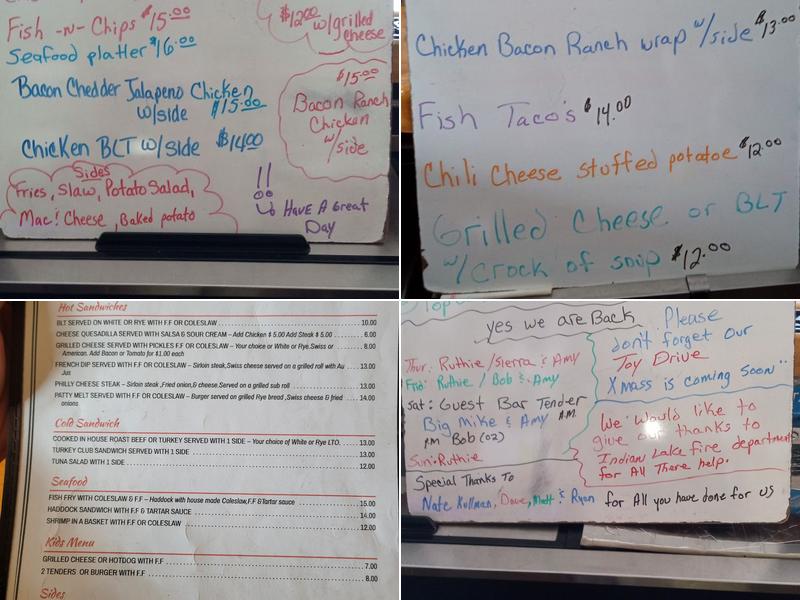 Fish -n- Chips $15.00
Seafood platter $16.00
Bacon Chedder Jalapeno Chicken
w/side $15.00
Chicken BLT w/side $14.00
Sides
Fries, Slaw, Potato Salad,
Mac! Cheese, Baked potato
$12.00 w/grilled
cheese
$15.00
Bacon Ranch
Chicken
w/
side
!!
Have A Great
Day
Chicken Bacon Ranch wrap w/side $13.00
Fish Taco's $14.00
Chili Cheese stuffed potatoe $12.00
Grilled Cheese or BLT
w/Crock of soup $12.00
Hot Sandwiches
BLT SERVED ON WHITE OR RYE WITH F.F OR COLESLAW 10.00
CHEESE QUESADILLA SERVED WITH SALSA & SOUR CREAM – Add Chicken $ 5.00 Add Steak $ 5.00 6.00
GRILLED CHEESE SERVED WITH PICKLES F.F OR COLESLAW – Your choice or White or Rye,Swiss or 8.00
American. Add Bacon or Tomato for $1.00 each
FRENCH DIP SERVED WITH F.F OR COLESLAW – Sirloin steak,Swiss cheese served on a grilled roll with Au 13.00
Jus
PHILLY CHEESE STEAK – Sirloin steak ,Fried onion,& cheese,Served on a grilled sub roll 13.00
PATTY MELT SERVED WITH F.F OR COLESLAW – Burger served on grilled Rye bread ,Swiss cheese & fried 14.00
onions
Cold Sandwich
COOKED IN HOUSE ROAST BEEF OR TURKEY SERVED WITH 1 SIDE – Your choice of White or Rye LTO. 13.00
TURKEY CLUB SANDWICH SERVED WITH 1 SIDE 13.00
TUNA SALAD WITH 1 SIDE 12.00
Seafood
FISH FRY WITH COLESLAW & F.F – Haddock with house made Coleslaw,F.F &Tartar sauce 15.00
HADDOCK SANDWICH WITH F.F & TARTAR SAUCE 14.00
SHRIMP IN A BASKET WITH F.F OR COLESLAW 12.00
Kids Menu
GRILLED CHEESE OR HOTDOG WITH F.F 7.00
2 TENDERS OR BURGER WITH F.F 8.00
Sides
yes we are Back
Thur: Ruthie /Sierra & Amy
Fri: Ruthie / Bob & Amy
Sat: Guest Bar Tender
Big Mike & Amy A.M.
P.M Bob (02)
Sun: Ruthie
Please
don't forget our
Toy Drive
Xmass is coming soon
We Would like to
give our thanks to
Indian Lake fire department
for All There help.
Special Thanks To
Nate Kullman, Dave, Matt & Ryan for All you have done for us